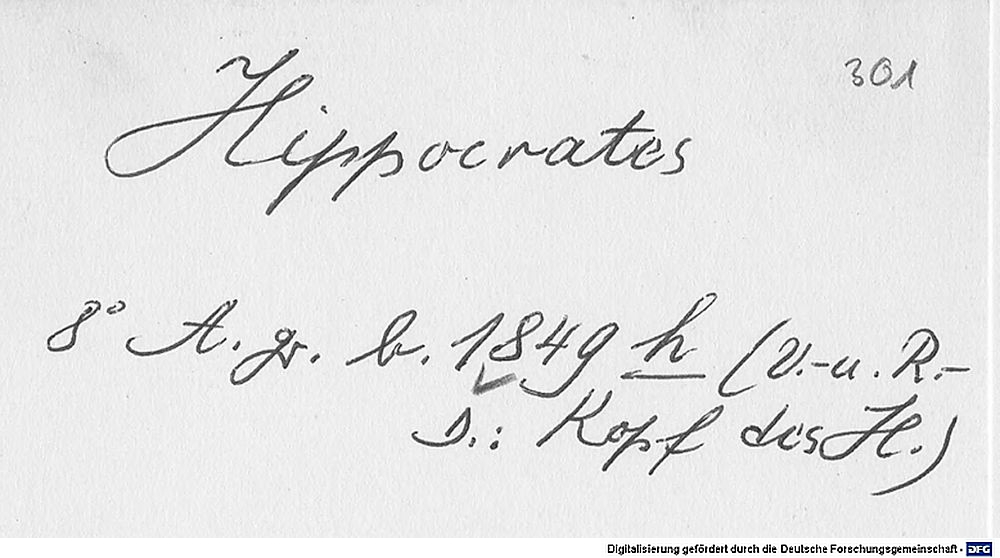 301
Hippocrates
8° A. gr. b. 1849 h (V.- u. R.-
D.: Kopf des H.)
Digitalisierung gefördert durch die Deutsche Forschungsgemeinschaft - DFG